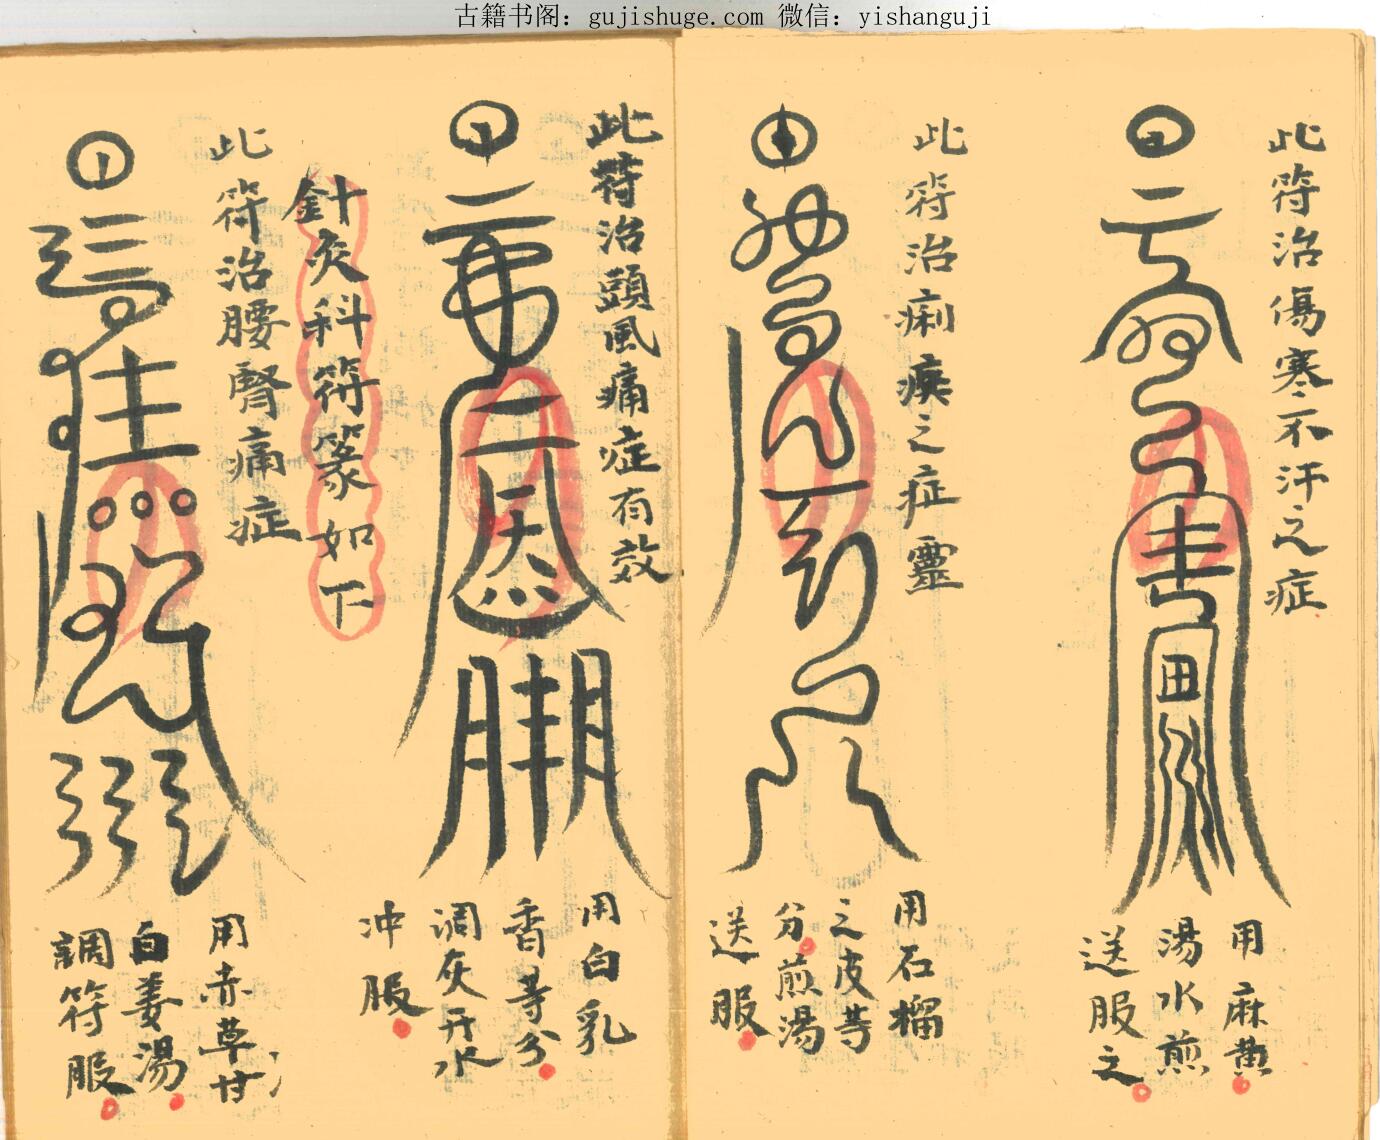 古籍书阁：gujishuge.com 微信：yishanguji
此符治傷寒不汗之症
用麻黄
湯水煎
送服之
此符治痢疾之症靈
用石榴
之皮等
分煎湯
送服
此符治頭風痛症有效
用白乳
香等分
调灰开水
冲服
針灸科符篆如下
此符治腰腎痛症
用赤草甘
白姜湯
調符服